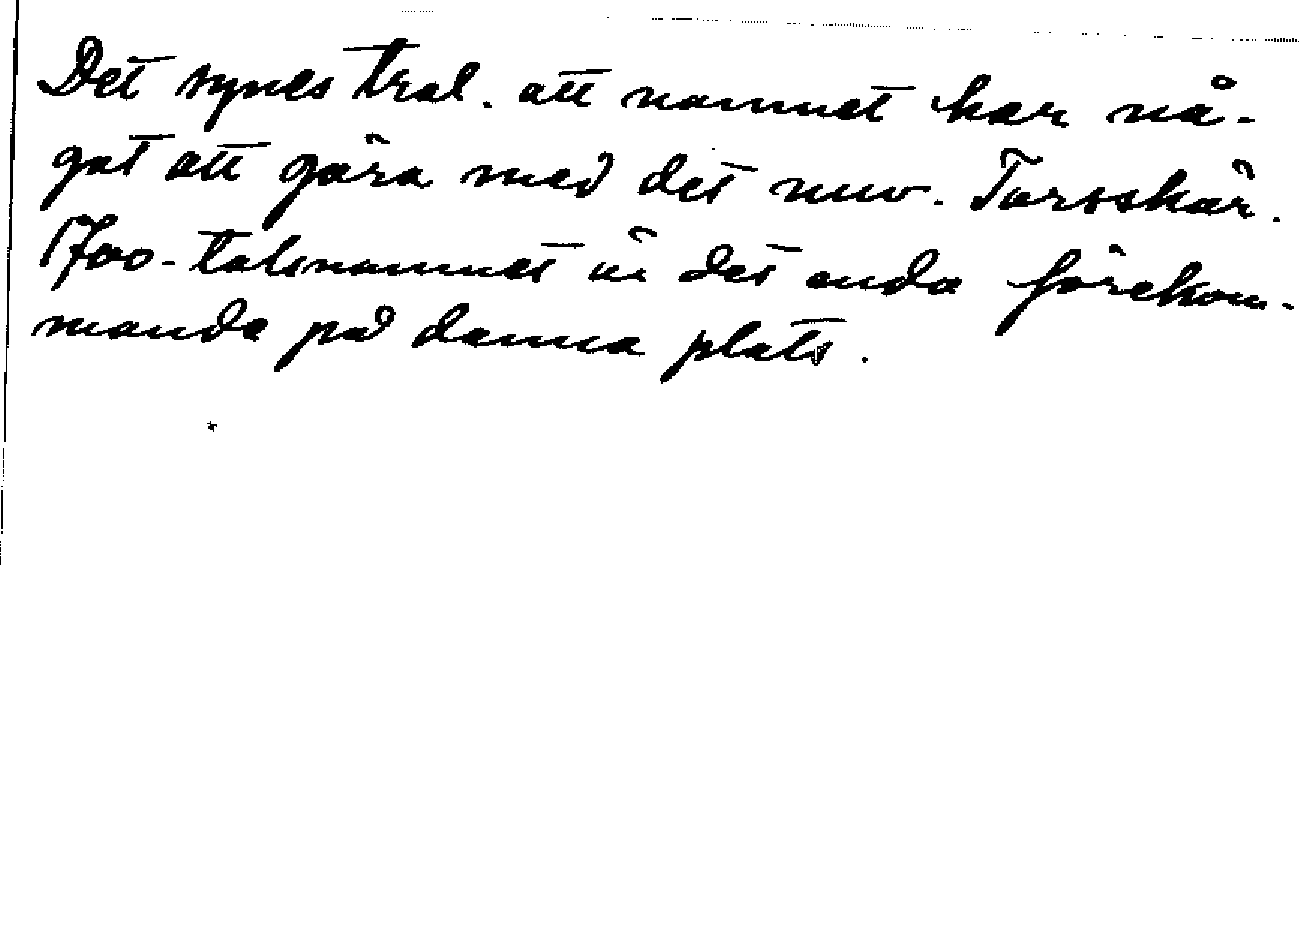 Det synes tral. att namnet har nå-
got att göra med det nuv. Torsskär.
1700-talsnamnet är det enda förekom-
mande på denna plats.